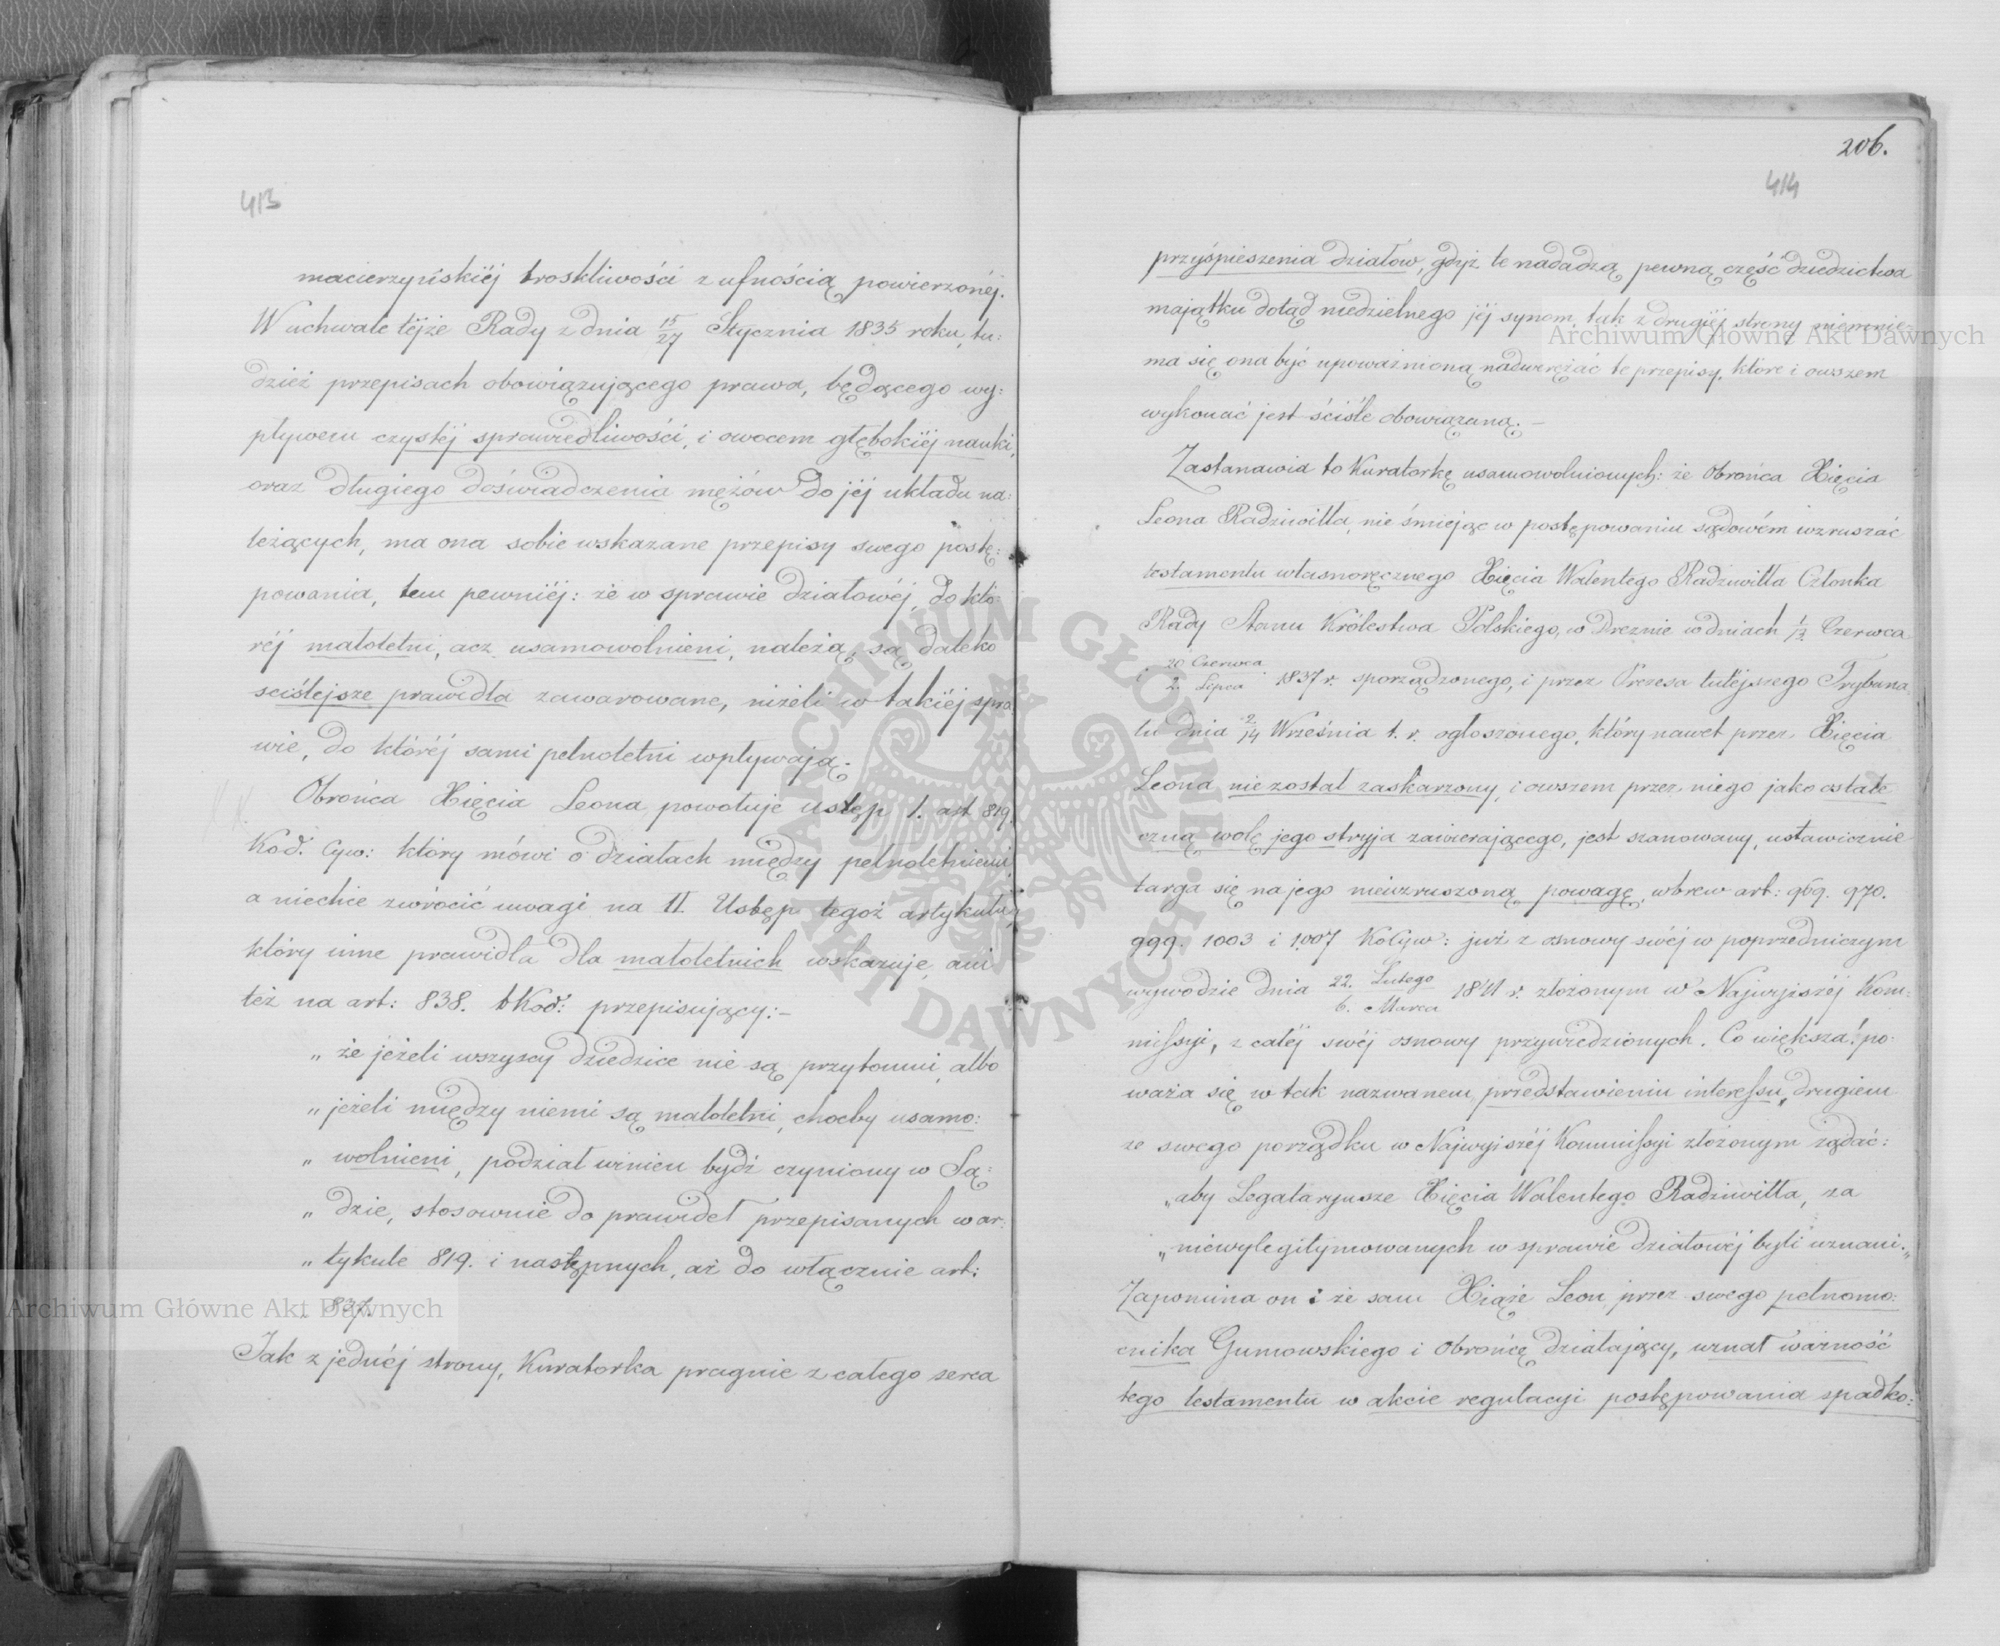 413
macierzyńskiéj troskliwości z ufnością powierzonéj.
W uchwale téjże Rady z dnia 15/27 Stycznia 1835 roku, tu:
dzież przepisach obowiązującego prawa, będącego wy:
pływem czystéj sprawiedliwości, i owocem głębokiéj nauki,
oraz długiego doświadczenia mężów do jéj układu na:
leżących, ma ona sobie wskazane przepisy swego postę:
powania, tem pewniéj: że w sprawie działowéj, do któ:
réj małoletni, acz usamowolnieni, należą, są daleko
sciślejsze prawidła zawarowane, niżeli w takiéj spra
wie, do któréj sami pełnoletni wpływają.
Obrońca Xięcia Leona powołuje ustęp 1. art 819.
Kod. Cyw: który mówi o działach między pełnoletniemi,
a niechce zwrócić uwagi na II Ustęp tegoż artykułu,
który inne prawidła dla małoletnich wskazuje, ani
też na art: 838. t Kod: przepisujący:–
„ że jeżeli wszyscy dziedzice nie są przytomni, albo
„ jeżeli między niemi są małoletni, choćby usamo:
„ wolnieni, podział winien bydź czyniony w Są:
„ dzie, stosownie do prawideł przepisanych w ar:
„ tykule 819. i następnych, aż do włącznie art:
837.
Jak z jednéj strony, Kuratorka pragnie z całego serca
206.
414
przyśpieszenia działów, gdyż te nadadzą pewną część dziedzictwa
majątku dotąd niedzielnego jéj synom, tak z drugiéj strony niemnie-
ma się ona być upoważnioną nadwerężać te przepisy, które i owszem
wykonać jest ściśle obowiązaną.–
Zastanawia to Kuratorkę usamowolnionych: że Obrońca Xięcia
Leona Radziwiłła, nie śmiejąc w postępowaniu sądowém wzruszać
testamentu własnoręcznego Xięcia Walentego Radziwiłła Członka
Rady Stanu Królestwa Polskiego, w Dreznie w dniach 1/13 Czerwca
i 20 Czerwca/2. Lipca 1837 r. sporządzonego, i przez Prezesa tutéjszego Trybuna
łu dnia 2/14 Września t. r. ogłoszonego, który nawet przez Xięcia
Leona nie został zaskarzony, i owszem przez niego jako ostate
czną wolę jego stryja zawierającego, jest szanowany, ustawicznie
targa się na jego niewzruszoną powagę, wbrew art: 969. 970.
999. 1003 i 1007 KoCyw: już z osnowy swéj w poprzedniczym
wywodzie dnia 22. Lutego/6. Marca 1841 r. złożonym w Najwyjszéj Kom:
missyi, z całéj swéj osnowy przywiedzionych. Co większa! po:
waża się w tak nazwanem przedstawieniu interessu, drugiem
ze swego porządku w Najwyjszéj Kommissyi złożonym żądać:
„aby Legataryusze Xięcia Walentego Radziwiłła, za
„niewylegitymowanych w sprawie działowéj byli uznani.„
Zapomina on: że sam Xiąże Leon przez swego pełnomo:
cnika Gumowskiego i Obrońcę działający, uznał ważność
tego testamentu w akcie regulacyi postępowania spadko:
Archiwum Główne Akt Dawnych
Archiwum Główne Akt Dawnych
ARCHIWUM GŁÓWNE AKT DAWNYCH